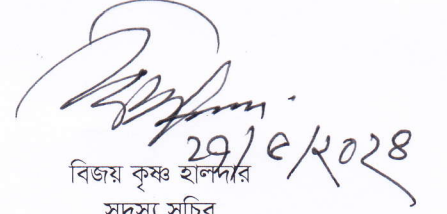 ২৭/৫/২০২৪
বিজয় কৃষ্ণ হালদার
সদস্য সচিব